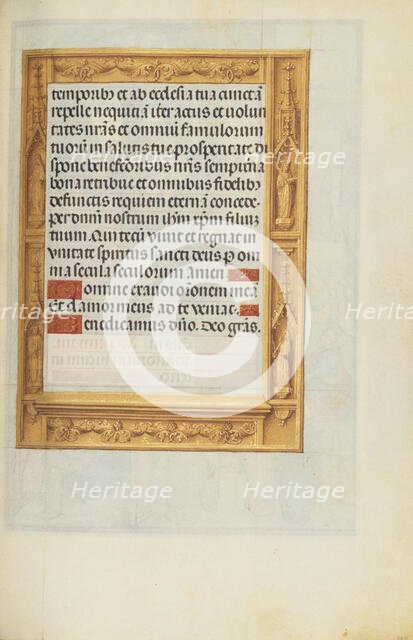 temporibꝫ et ab ecclesia tua cunctā
repelle nequitiā. iter actus et volun
tates nr̄as et omniū famulorum
tuorū in salutis tue prosperitate di
spone benefactoribus nr̄is sempitna
bona retribue et omnibus fidelibꝫ
defunctis requiem eternā concede.
per dnm̄ nostrum ihm̄ xpm̄ filiū
tuum. Qui tecū vivit et regnat in
unitate spiritus sancti deus p om
nia secula seculorum amen
Domine exaudi orōnem meā
Et clamor meus ad te veniat.
Benedicamus dn̄o. Deo grās.
Heritage
Heritage
Heritage
Heritage
Heritage
Heritage
Heritage
Heritage